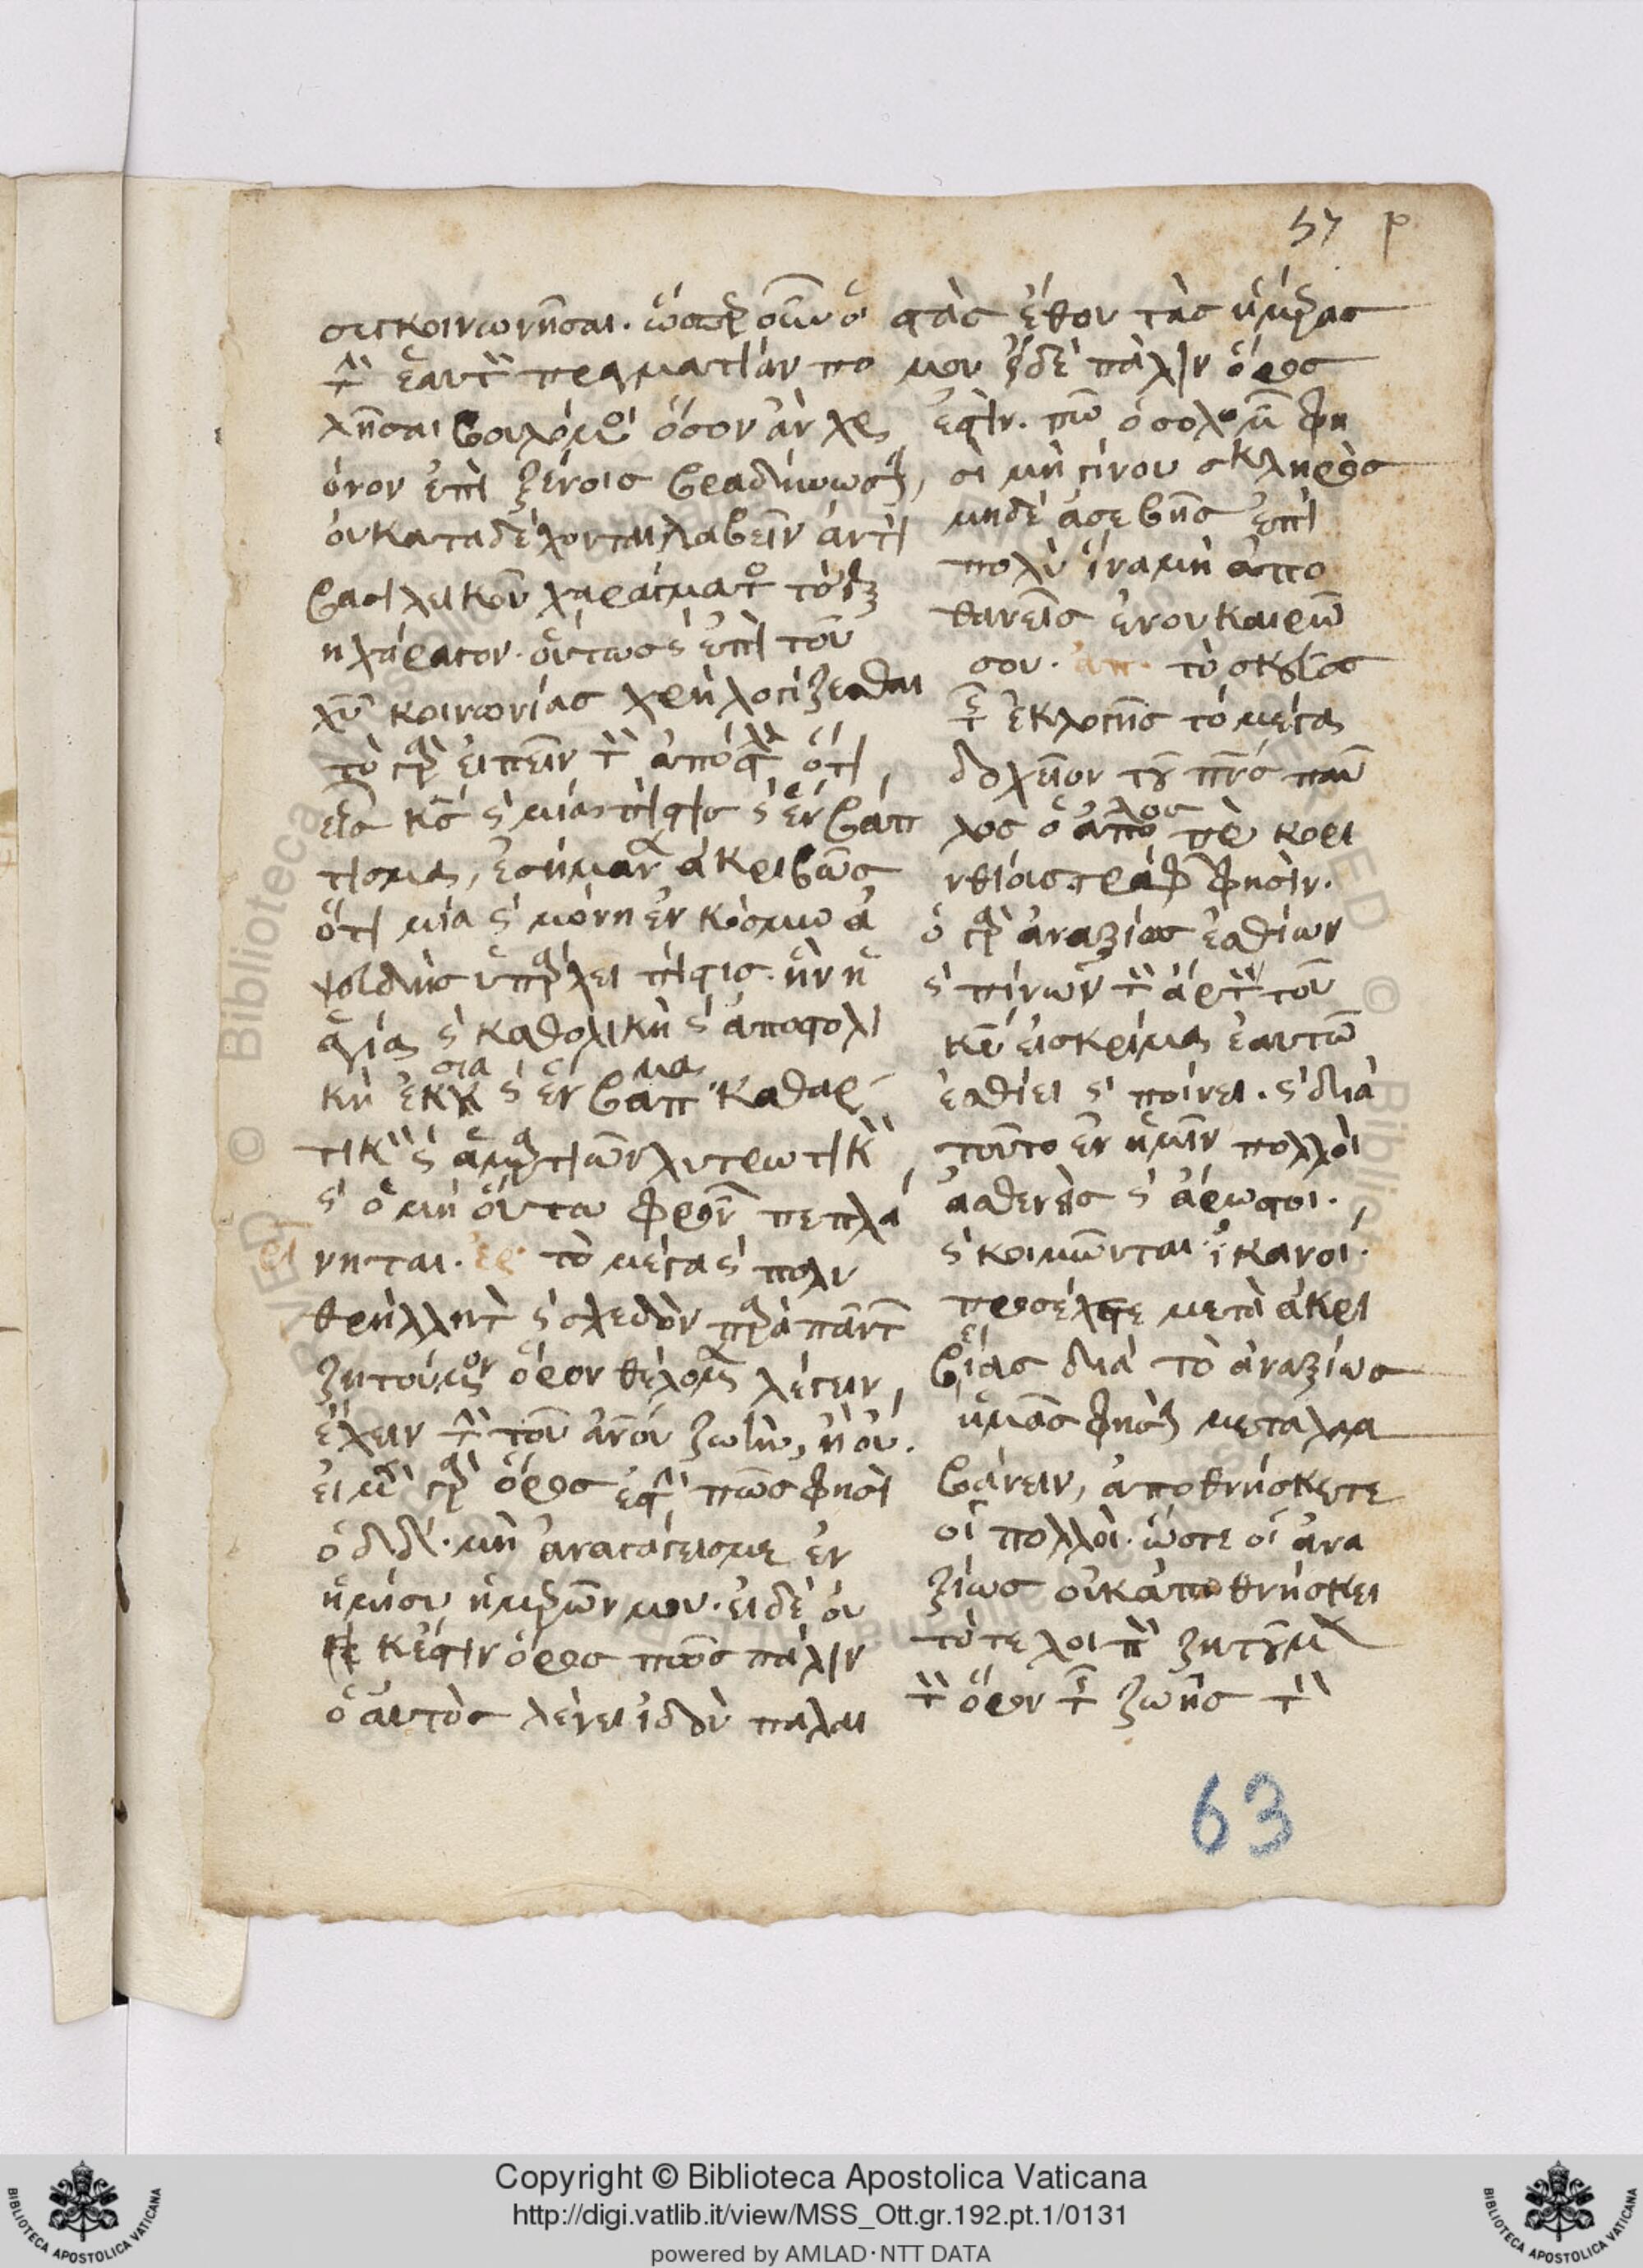 57 ρ
συγκοινωνῆσαι. ὥσπερ οὖν ὁ
τὴν ἑαυτοῦ πραγματίαν πο
λῆσαι βουλόμενος ὅσον ἂν χρ
όνον ἐπὶ ξένοις
οὐ καταδέχονται λαβεῖν ἀντὶ
βασιλικοῦ χαράγματος
ἢ χάραγον. οὕτως καὶ ἐπὶ τοῦ
χυ κοινωνίας χρὴ λογίζεσθαι
τὸ γὰρ εἰπεῖν τὸν ἀπόστολον ὅτι
εἷς κς καὶ μία πίστις καὶ ἓν βάπ
τισμα, ἐσήμανεν ἀκριβῶς
ὅτι μία καὶ μόνη ἐν κόσμω ἀ
ψευδὴς ὑπάρχει πίστις. ἣν ἡ
ἁγία καὶ καθολικὴ καὶ ἀποστολι
κὴ ἐκκλησία καὶ ἓν βάπτισμα καθαρ
τικὸν καὶ ἁμαρτιῶν λυτρωτικὸν
καὶ ὁ μὴ οὕτω φρονῶν πεπλά
νηται. ἐρ. τὸ μέγα καὶ πολυ
θρήλλητον καὶ σχεδὸν παρὰ πάντων
ζητούμενον ὅρον θέλομεν λέγειν,
ἔχειν τὴν τοῦ ἀνου ζωὴν, ἢ οὔ.
εἰ μὲν γὰρ ὅρος ἐστὶν πῶς φησὶ
ὁ δαδ. μὴ ἀναγάγεις με ἐν
ἡμίσει ἡμερῶν μου. εἰ δὲ οὐ
κ ἔστιν ὅρος πῶς πάλιν
ὁ αὐτὸς λέγει ἰδοὺ παλαι
στὰς ἔθου τὰς ἡμέρας
μου εἰ δὲ πάλιν ὅρος
ἐστὶν. πῶς ὁ σολομῶν φη
σὶ μὴ γίνου σκληρὸς
μηδὲ ἀσεβὴς ἐπὶ
πολὺ ἵνα μὴ ἀπο
θανεῖς ἐν οὐ καιρῶ
σου. ἀπ. τὸ σκεῦος
τῆς ἐκλογῆς τὸ μέγα
δοχεῖον τοῦ πνς παῦ
λος ὁ ἀπόστολος πρὸς κορι
νθίους γράφων φησὶν.
ὁ γὰρ ἀναξίως ἐσθίων
καὶ πίνων τὸν ἄρτον τοῦ
κυ εἰς κρίμα ἑαυτῶ
ἐσθίει καὶ ποίνει. καὶ διὰ
τοῦτο ἐν ἡμῖν πολλοὶ
ἀσθενεῖς καὶ ἄρωστοι.
καὶ κοιμῶνται ἱκανοί.
προσέχετε μετὰ ἀκρι
βείας διὰ τὸ ἀναξίως
ἡμᾶς φησὶ μεταλαμ
βάνειν, ἀποθνήσκετε
οἱ πολλοὶ. ὥστε οἱ ἀνα
ξίως οὐκ ἀποθνήσκει
τότε λοιπὸν ζητοῦμεν
τὸν ὅρον τῆς ζωῆς τὸν
63
Copyright © Biblioteca Apostolica Vaticana
http://digi.vatlib.it/view/MSS_Ott.gr.192.pt.1/0131
powered by AMLAD·NTT DATA